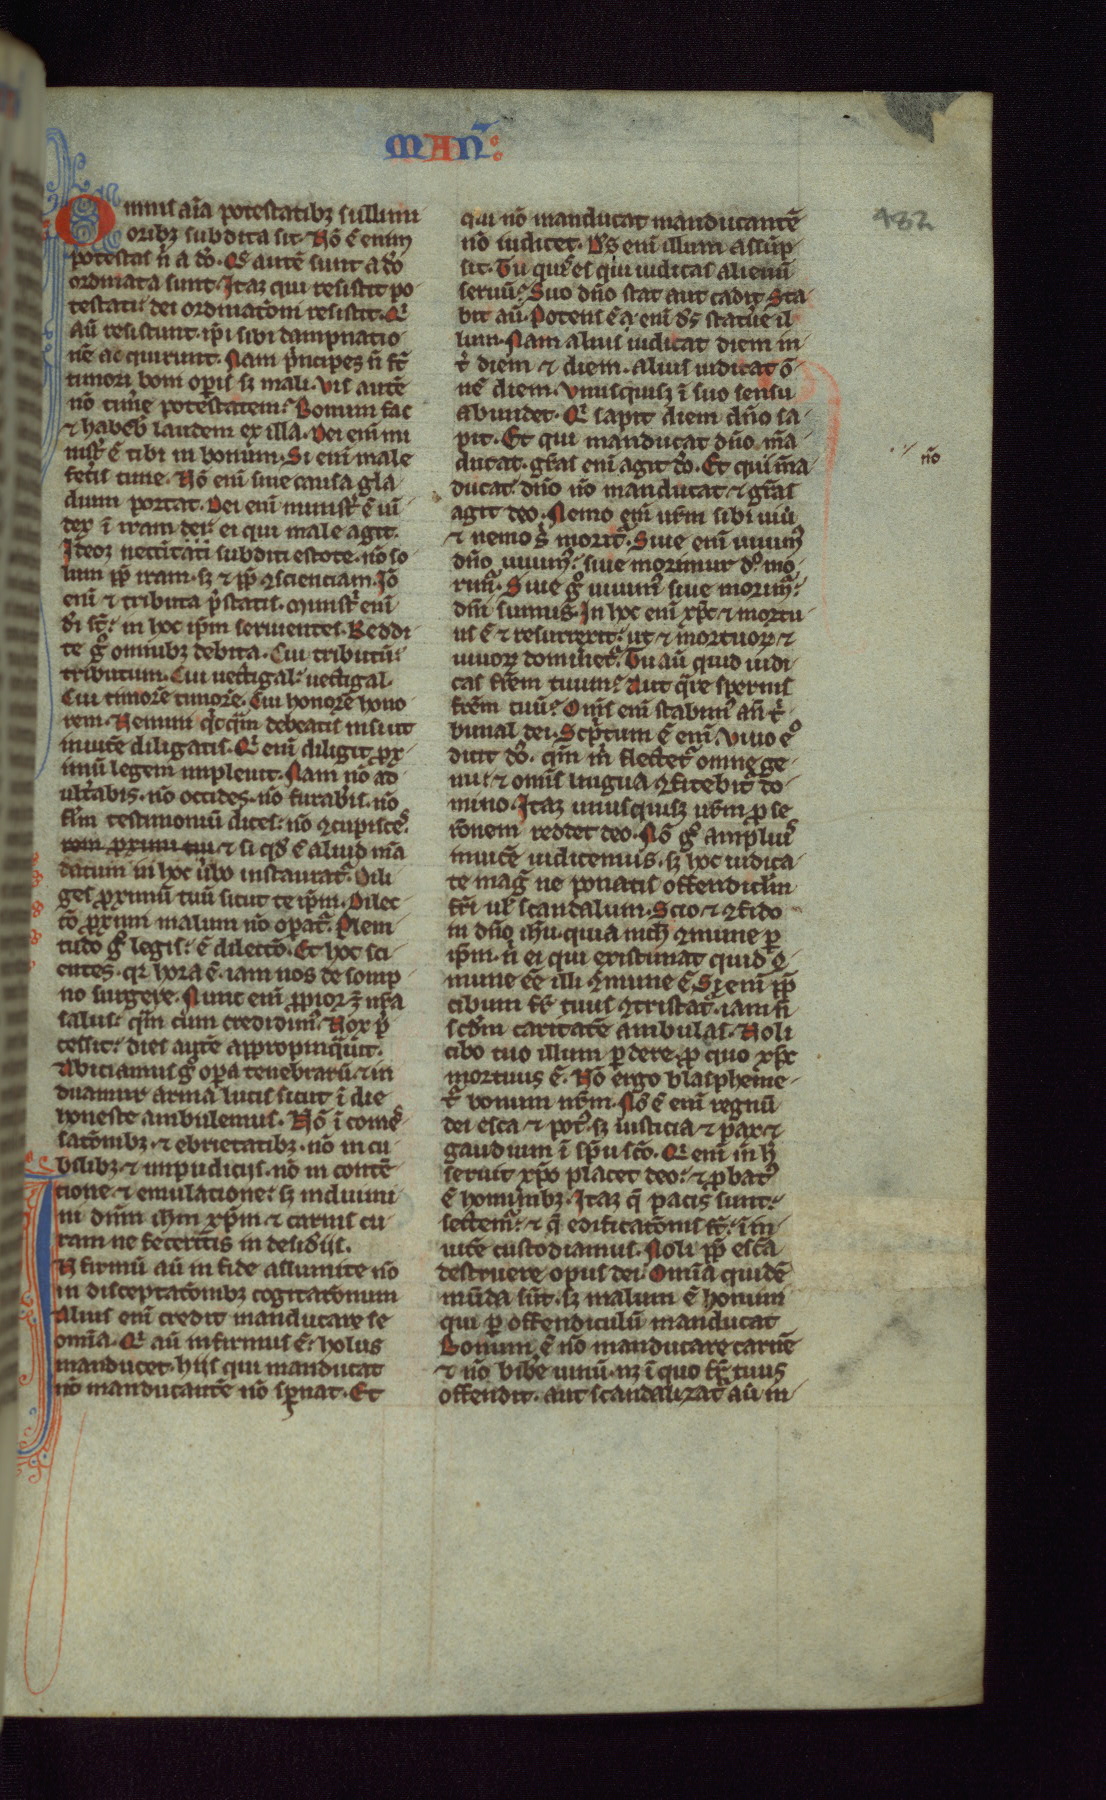 MAN̄:
482
Omnis aīa potestatibꝫ sullimi
oribꝫ subdita sit. Nō ē enim
potestas n̄ a dō. Q̄ autē sunt a dō
ordinata sunt. Itaqꝫ qui resistit po
testati dei ordinatōni resistit. Qͥ
aū resistunt ip̄i sibi dampnatio
nē acquirunt. Nam p̄ncipes n̄ st̄
timori boni op̄is sꝫ mali. Vis autē
nō tim̄e potestatem? Bonum fac
⁊ habeb̄ laudem ex illa. Dei enī mi
nist̄ ē tibi in bonum. Si enī male
fec̄is time. Nō enī sine causa gla
dium portat. Dei enī minist̄ ē vī
dex ī iram dei: ei qui male agit.
Ideoqꝫ nec̄citati subditi estote. nō so
lum ꝓp̄ iram. sꝫ ⁊ ꝓp̄ ꝯscienciam. Iō
enī ⁊ tributa p̄statis. Minist̄ enī
dī st̄: in hoc ip̄m seruientes. Reddi
te gͦ omnibꝫ debita. Cui tributū:
tributum. Cui uectigal: uectigal.
Cui timorē timorē. Cui honorē hono
rem. Nemini qͥcqͣm debeatis nisi ut
inuicē diligatis. Qͥ enī diligit ꝓx
imū legem impleuit. Nam nō ad
ult̄abis. nō occides. nō furab̄is. nō
fl̄m testimoniū dices: nō ꝯcupisces
rem proximi tui ⁊ si qͥd ē aliud mā
datum in hoc ūbo instauratͬ. Dili
ges ꝓximū tuū sicut te ip̄m. Dilec
tō ꝓximi malum nō op̄atͬ. Pleni
tudo gͦ legis: ē dilectō. Et hoc sci
entes. qꝛ hora ē. iam nos de somp
no surgere. Nunc enī ꝓpior ē nr̄a
salus: qͣm cum credidimꝰ. Nox p̄
cessit: dies autē appropinquit.
Abiciamus gͦ op̄a tenebrarū ⁊ in
duamur arma lucis sicut ī die
honeste ambulemus. Nō ī comes
satōnibꝫ ⁊ ebrietatibꝫ. nō in cu
bilibꝫ ⁊ impudicijs. nō in contē
tione ⁊ emulacione: sꝫ induimi
ni dn̄m ihm xp̄m ⁊ carnis cu
ram ne feceritis in desid̄ijs.
Infirmū aū in fide assumite nō
in disceptatōnibꝫ cogitatōnum
Alius enī credit manducare se
omīa. Qͥ aū infirmus ē: holus
manducet. hijs qui manducat
nō manducantē nō sp̄nat. Et
qui nō manducat manducantē
nō iudicet. Dꝰs enī illum assūp
sit. Tu quis es qui iudicas alienū
seruū? Suo dn̄o stat aut cadit. Sta
bit aū. Potens ē enī dꝰs statuē il
lum. Nam alius iudicat diem in
tͬ diem ⁊ diem. Alius iudicat ō
nē diem. Vnusquisqꝫ ī suo sensu
abundet. Qͥ sapit diem dn̄o sa
pit. Et qui manducat dn̄o mā
ducat. gr̄as enī agit dō. Et qui mā
ducat dn̄o nō manducat ⁊ gr̄as
nō
agit deo. Nemo enī nr̄m sibi uiū
⁊ nemo s̄ moritͬ. Siue enī uiuimꝰ
dn̄o uiuimꝰ: siue morimur dō mo
rimͬ. Siue gͦ uiuimꝰ siue morimͬ:
dn̄i sumus. In hoc enī xp̄c ⁊ mortu
us ē ⁊ resurrexit: ut ⁊ mortuoꝝ ⁊
uiuoꝝ dominetͬ. Tu aū quid iudi
cas fr̄em tuum? Aut qͣre spernis
fr̄em tuū? Om̄s enī stabimꝰ an̄ tͥ
bunal dei. Scͥptum ē enī. Viuo eͦ
dicit dō. qͣm m̄ flectetͬ omne ge
nu: ⁊ omīs lingua ꝯfitebitͬ do
mino. Itaqꝫ unusquisqꝫ nr̄m ꝓ se
rōnem reddet deo. Nō gͦ ampliꝰ
inuicē iudicemus. sꝫ hoc iudica
te maḡ ne ponatis offendiclm̄
fr̄i ul̄ scandalum. Scio ⁊ ꝯfido
in dn̄o ihu. quia nich̄ ꝯmune ꝑ
ip̄m. n̄ ei qui existimat quid ꝯ
mune eē illi ꝯmune ē. Si enī ꝓp̄
cibum fr̄ tuus ꝯtristatͬ. iam n̄
scdm̄ caritatē ambulas. Noli
cibo tuo illum ꝑdere ꝓ quo xp̄c
mortuus ē. Nō ergo blasphēme
tͬ bonum nr̄m. Nō ē enī regnū
dei esca ⁊ potꝰ. sꝫ iusticia ⁊ pax ⁊
gaudium ī sp̄u scō. Qͥ enī in h̄
seruit xp̄o placet deo: ⁊ ꝓbatꝰ
ē hominibꝫ. Itaqꝫ q̄ pacis sunt:
sectemͬ: ⁊ q̄ edificatōnis st̄: ī in
uicē custodiamus. Noli ꝓp̄ escā
destruere opus dei. Omīa quidē
mūda sūt. sꝫ malum ē homini
qui ꝑ offendiculū manducat
Bonum ē nō manducare carnē
⁊ nō bib̄e uinū. nꝫ ī quo fr̄ tuus
offendit. aut scandalizatͬ aū in